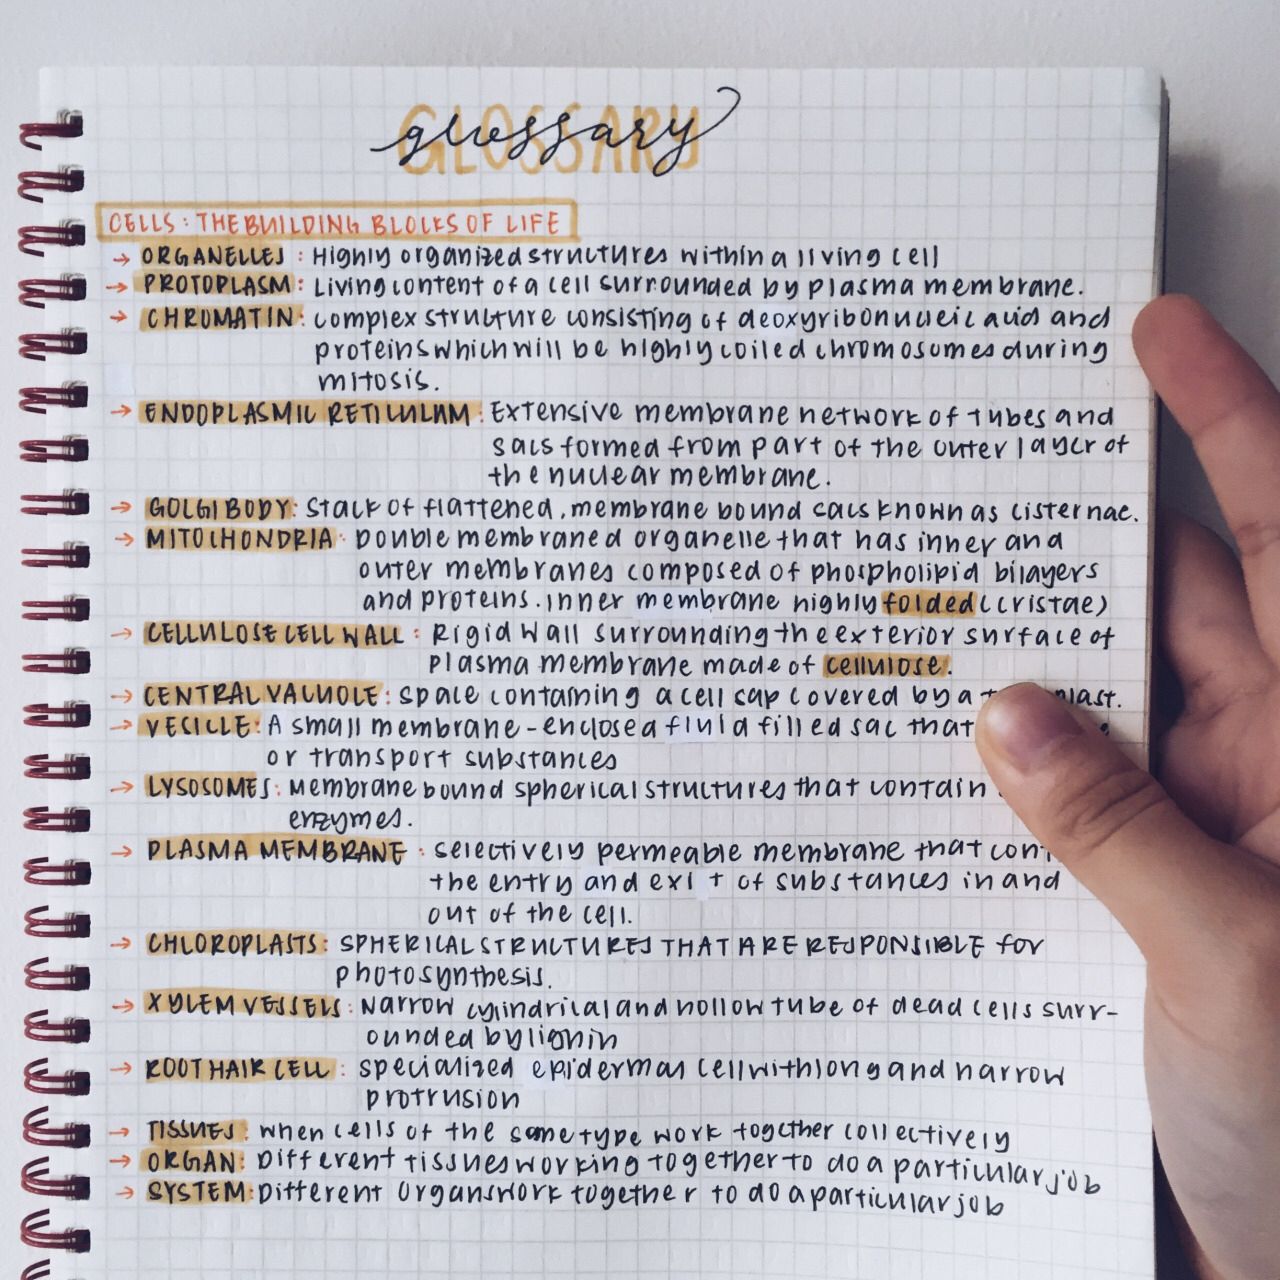 GLOSSARY
glossary
CELLS: THE BUILDING BLOCKS OF LIFE
→ ORGANELLES: Highly organized structures within a living cell
→ PROTOPLASM: Living content of a cell surrounded by plasma membrane.
→ CHROMATIN: complex structure consisting of deoxyribonucleic acid and
proteins which will be highly coiled chromosomes during
mitosis.
→ ENDOPLASMIC RETICULUM: Extensive membrane network of tubes and
sacs formed from part of the outer layer of
the nuclear membrane.
→ GOLGI BODY: Stack of flattened, membrane bound sacs known as cisternae.
→ MITOCHONDRIA: Double membraned organelle that has inner and
outer membranes composed of phospholipid bilayers
and proteins. Inner membrane highly folded (cristae)
→ CELLULOSE CELL WALL: Rigid wall surrounding the exterior surface of
plasma membrane made of cellulose.
→ CENTRAL VACUOLE: space containing a cell sap covered by a
→ VESICLE: A small membrane-enclosed fluid filled sac that
or transport substances
→ LYSOSOMES: Membrane bound spherical structures that contain
enzymes.
→ PLASMA MEMBRANE: selectively permeable membrane that
the entry and exit of substances in and
out of the cell.
→ CHLOROPLASTS: SPHERICAL STRUCTURES THAT ARE RESPONSIBLE for
photosynthesis.
→ XYLEM VESSELS: Narrow cylindrical and hollow tube of dead cells surr-
ounded by lignin
→ ROOT HAIR CELL: specialized epidermal cell with long and narrow
protrusion
→ TISSUES: when cells of the same type work together collectively
→ ORGAN: Different tissues working together to do a particular job
→ SYSTEM: Different organs work together to do a particular job